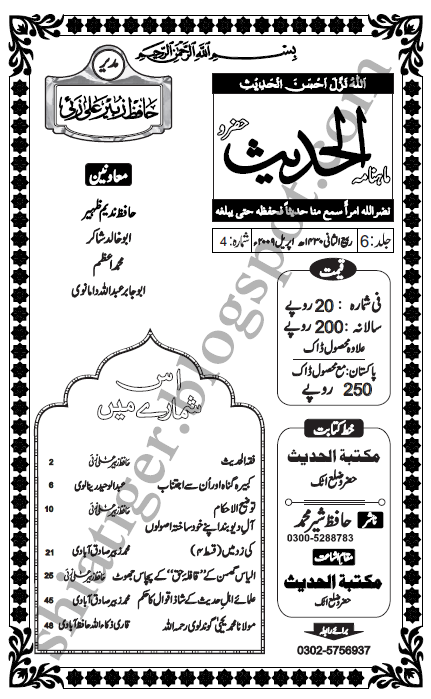 بسم اللہ الرحمن الرحیم
مدیر
حافظ زبیر علی زئی
اللہ نزل احسن الحدیث
ماہنامہ الحدیث حضرو
نضر الله امرأً سمع منا حديثاً فحفظه حتى يبلغه
جلد: 6 ربیع الثانی ۱۴۳۰ھ اپریل ۲۰۰۹ء شمارہ: 4
معاونین
حافظ ندیم ظہیر
ابو خالد شاکر
محمد اعظم
ابو جابر عبداللہ دامانوی
قیمت
فی شمارہ : 20 روپے
سالانہ : 200 روپے
علاوہ محصول ڈاک
پاکستان: مع محصول ڈاک
250 روپے
خط کتابت
مکتبۃ الحدیث
حضرو ضلع اٹک
ناشر حافظ شیر محمد
0300-5288783
مقام اشاعت
مکتبۃ الحدیث
حضرو ضلع اٹک
برائے رابطہ
0302-5756937
اس
شمارے میں
فقہ الحدیث حافظ زبیر علی زئی 2
کبیرہ گناہ اور اُن سے اجتناب عبدالوحید رینالوی 6
توضیح الاحکام حافظ زبیر علی زئی 10
آلِ دیوبند اپنے خود ساختہ اصولوں
کی زد میں (قسط ۳) محمد زبیر صادق آبادی 21
الیاس گھمن کے ”قافلۂ حق“ کے پچاس جھوٹ حافظ زبیر علی زئی 25
علمائے اہلِ حدیث کے شاذ اقوال کا حکم محمد زبیر صادق آبادی 45
مولانا محمد یحییٰ گوندلوی رحمہ اللہ قاری ذکاء اللہ حافظ آبادی 48
shratiger.blogspot.com